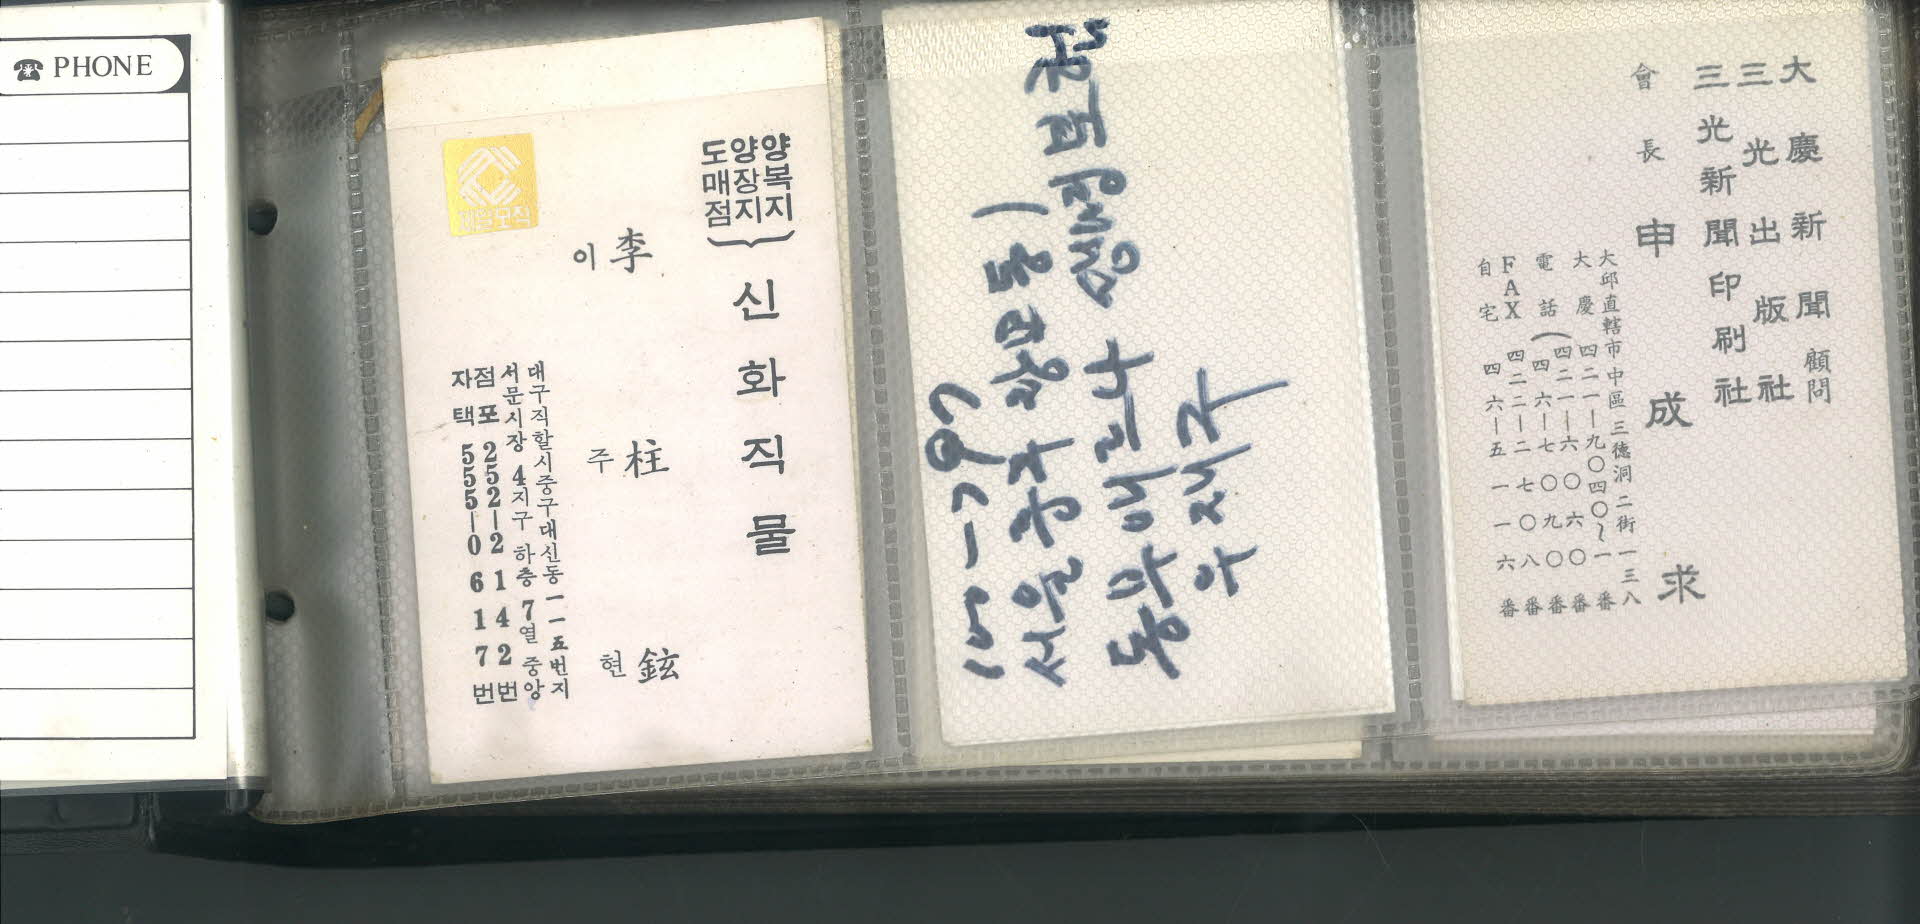 PHONE
양복지
양장지
도매점
신화직물
李柱鉉
이주현
대구직할시중구대신동一一五번지
서문시장4지구하층7열중앙
점포252-2142번
자택555-0617번
서울
동부
大慶新聞 顧問
三光出版社
三光新聞印刷社
會長 申成求
大邱直轄市中區三德洞二街一三八
大慶 四二一-九〇四〇~一番
電話(四二一-六〇六〇番
四六-七〇九〇番
FAX 四二二-二七〇八番
自宅 四六-五一一六番